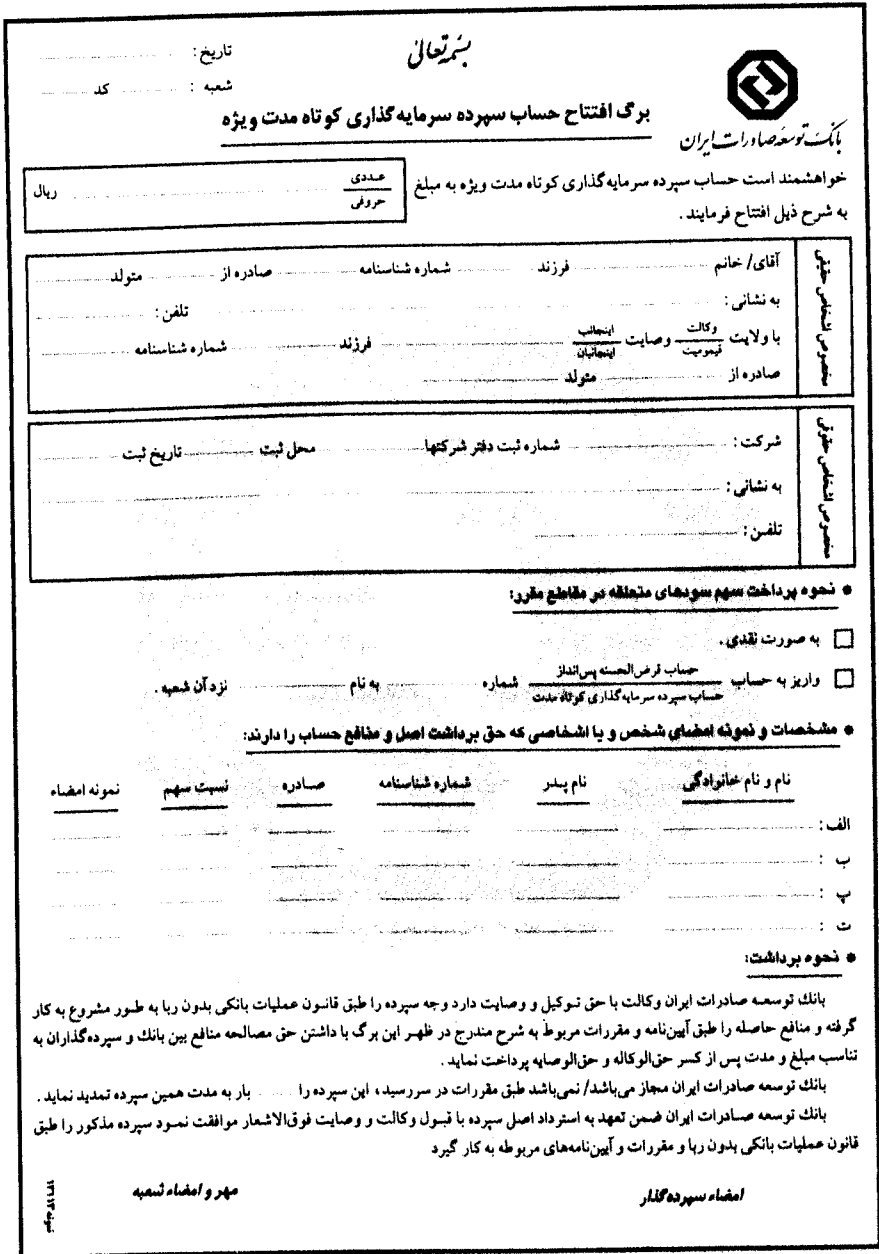 بسمه‌تعالی
تاریخ :
شعبه : کد
بانک توسعه صادرات ایران
برگ افتتاح حساب سپرده سرمایه‌گذاری کوتاه مدت ویژه
خواهشمند است حساب سپرده سرمایه‌گذاری کوتاه مدت ویژه به مبلغ عددی حروفی ریال
به شرح ذیل افتتاح فرمایند .
مخصوص اشخاص حقیقی
آقای/ خانم فرزند شماره شناسنامه صادره از متولد
به نشانی : تلفن :
با ولایت وکالت قیمومیت وصایت اینجانب اینجانبان فرزند شماره شناسنامه
صادره از متولد
مخصوص اشخاص حقوقی
شرکت : شماره ثبت دفتر شرکتها محل ثبت تاریخ ثبت
به نشانی :
تلفن :
• نحوه پرداخت سهم سودهای متعلقه در مقاطع مقرر:
به صورت نقدی .
واریز به حساب حساب قرض‌الحسنه پس‌انداز حساب سپرده سرمایه‌گذاری کوتاه مدت شماره به نام نزد آن شعبه .
• مشخصات و نمونه امضای شخص و یا اشخاصی که حق برداشت اصل و منافع حساب را دارند:
نام و نام خانوادگی نام پدر شماره شناسنامه صادره نسبت سهم نمونه امضاء
الف :
ب :
پ :
ت :
• نحوه برداشت:
بانک توسعه صادرات ایران وکالت با حق توکیل و وصایت دارد وجه سپرده را طبق قانون عملیات بانکی بدون ربا به طور مشروع به کار
گرفته و منافع حاصله را طبق آیین‌نامه و مقررات مربوط به شرح مندرج در ظهر این برگ با داشتن حق مصالحه منافع بین بانک و سپرده‌گذاران به
تناسب مبلغ و مدت پس از کسر حق‌الوکاله و حق‌الوصایه پرداخت نماید .
بانک توسعه صادرات ایران مجاز می‌باشد/ نمی‌باشد طبق مقررات در سررسید ، این سپرده را بار به مدت همین سپرده تمدید نماید .
بانک توسعه صادرات ایران ضمن تعهد به استرداد اصل سپرده با قبول وکالت و وصایت فوق‌الاشعار موافقت نمود سپرده مذکور را طبق
قانون عملیات بانکی بدون ربا و مقررات و آیین‌نامه‌های مربوطه به کار گیرد
امضاء سپرده‌گذار مهر و امضاء شعبه